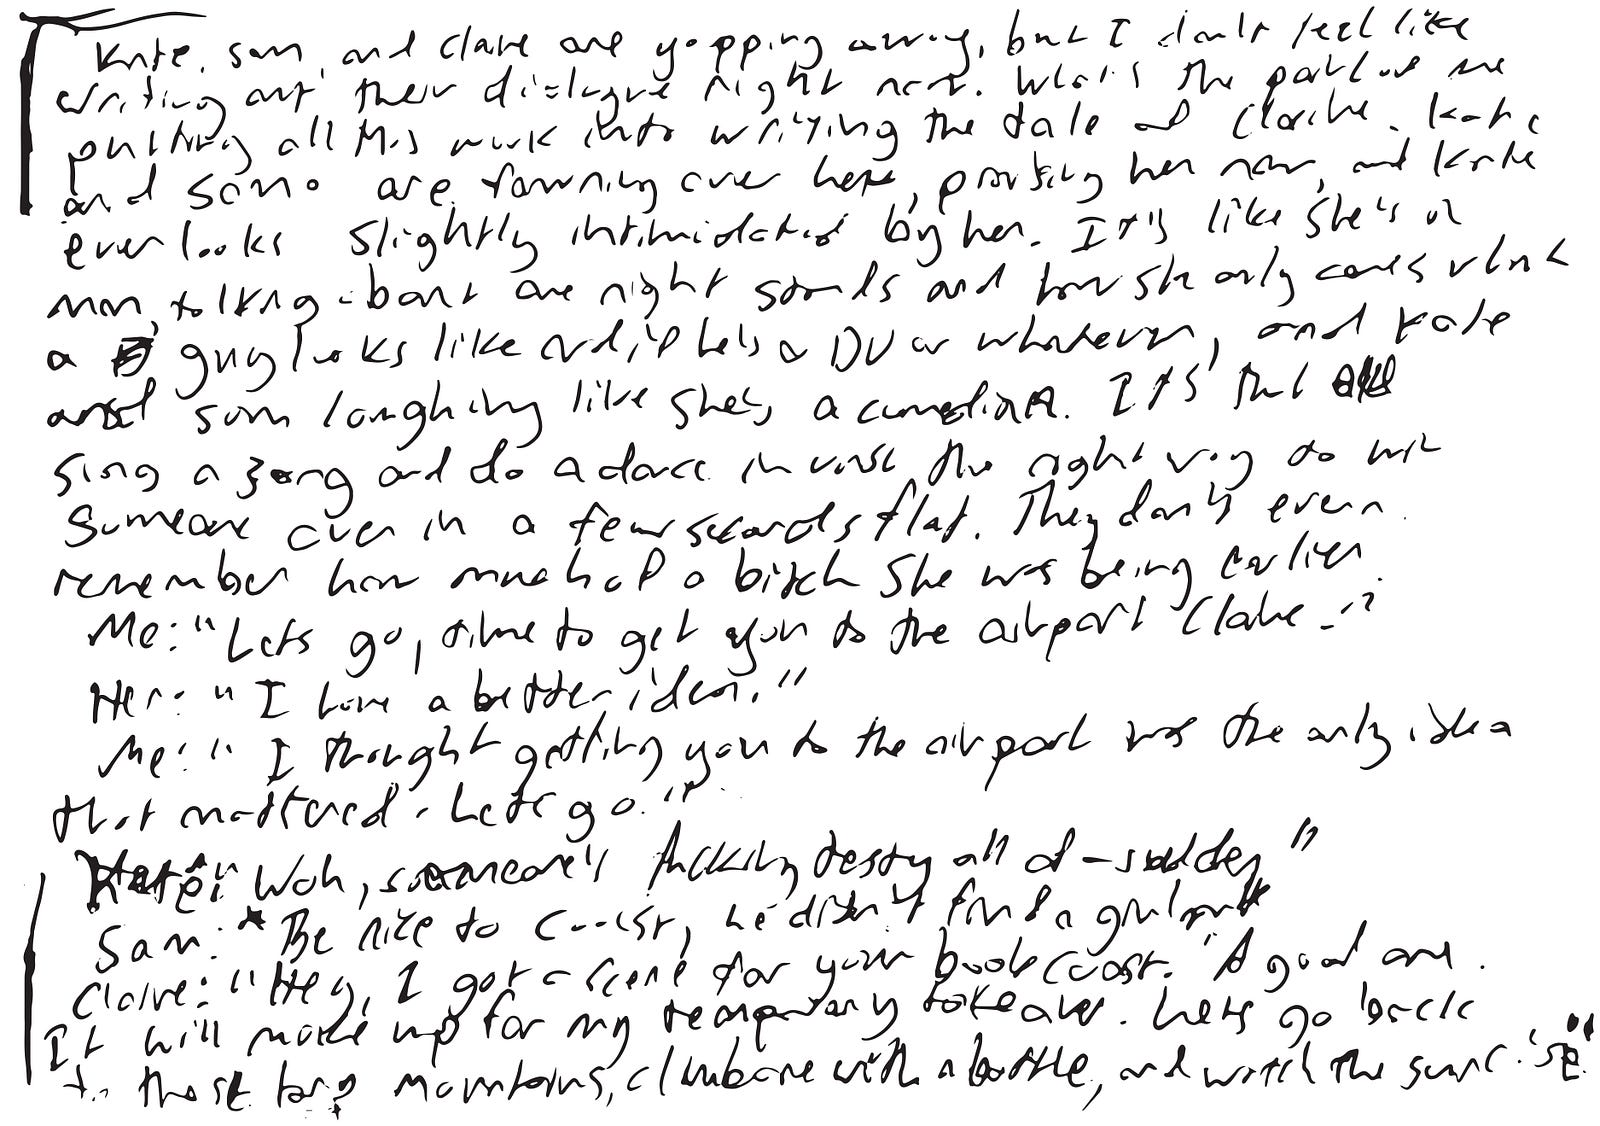 Kate, Sam, and Claire are yapping away, but I don't feel like
writing out their dialogue right now. What's the point of me
putting all this work into writing the tale of Claire. Kate
and Sam are fawning over here, praising her now, and Kate
even looks slightly intimidated by her. It's like she's a
man, talking about one night stands and how she only cares what
a guy looks like and if he's a DU or whatever, and Kate
and Sam laughing like she's a comedian. It's that
sing a song and do a dance in just the right way to win
someone over in a few seconds flat. They don't even
remember how much of a bitch she was being earlier.
Me: "Lets go, time to get you to the airport Claire."
Her: "I have a better idea."
Me: "I thought getting you to the airport was the only idea
that mattered. Lets go."
Kate: Woh, someone's fucking testy all of a sudden"
Sam: "Be nice to Coast, he didn't find a girl
Claire: "Hey, I got a scene for your book Coast. A good one.
It will make up for my temporary takeover. Lets go back
to those big mountains, climb one with a bottle, and watch the sunrise"